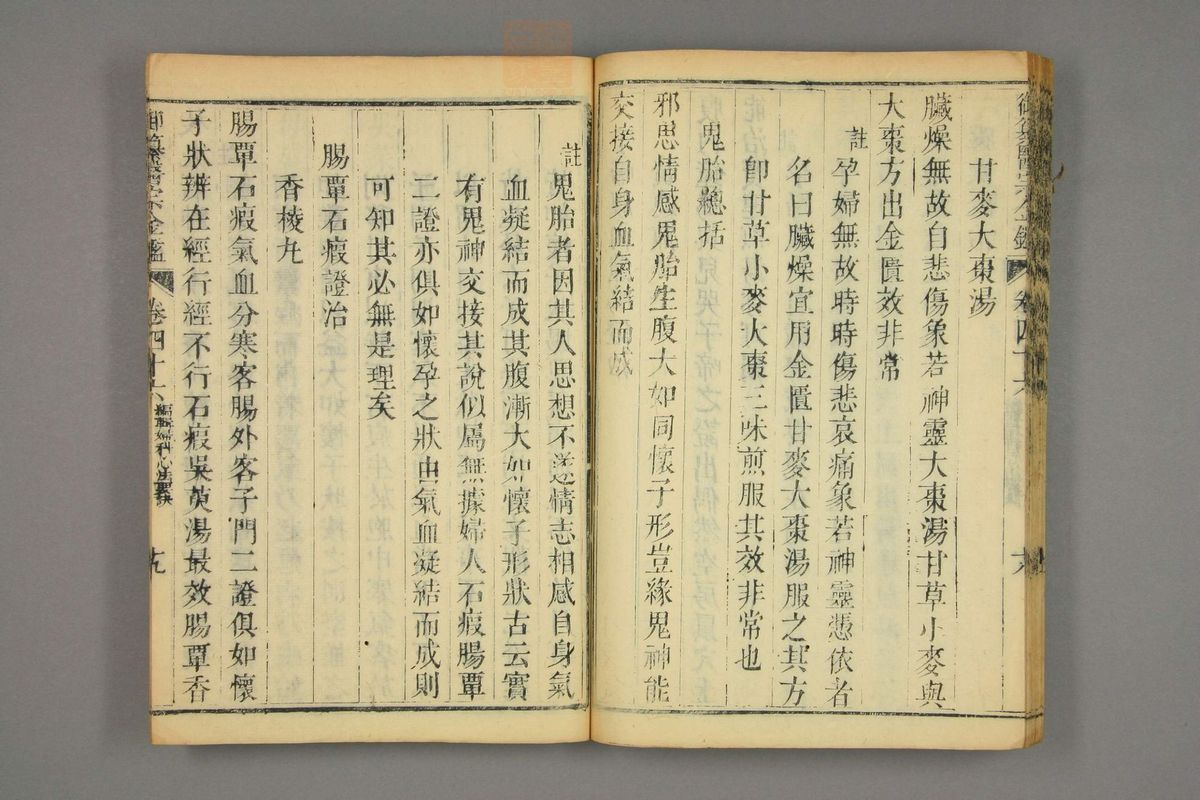 御纂醫宗金鑑 卷四十六
甘麥大棗湯
臟燥無故自悲傷象若神靈大棗湯甘草小麥與
大棗方出金匱效非常
註 孕婦無故時時傷悲哀痛象若神靈憑依者
名曰臟燥宜用金匱甘麥大棗湯服之其方
卽甘草小麥大棗三味煎服其效非常也
鬼胎總括
邪思情感鬼胎生腹大如同懷子形豈緣鬼神能
交接自身血氣結而成
註 鬼胎者因其人思想不遂情志相感自身氣
血凝結而成其腹漸大如懷子形狀古云實
有鬼神交接其說似屬無據婦人石瘕腸覃
二證亦俱如懷孕之狀由氣血凝結而成則
可知其必無是理矣
腸覃石瘕證治
香稜丸
腸覃石瘕氣血分寒客腸外客子門二證俱如懷
子狀辨在經行經不行石瘕吳茰湯最效腸覃香
御纂醫宗金鑑 卷四十六 編輯婦科心法要訣 九